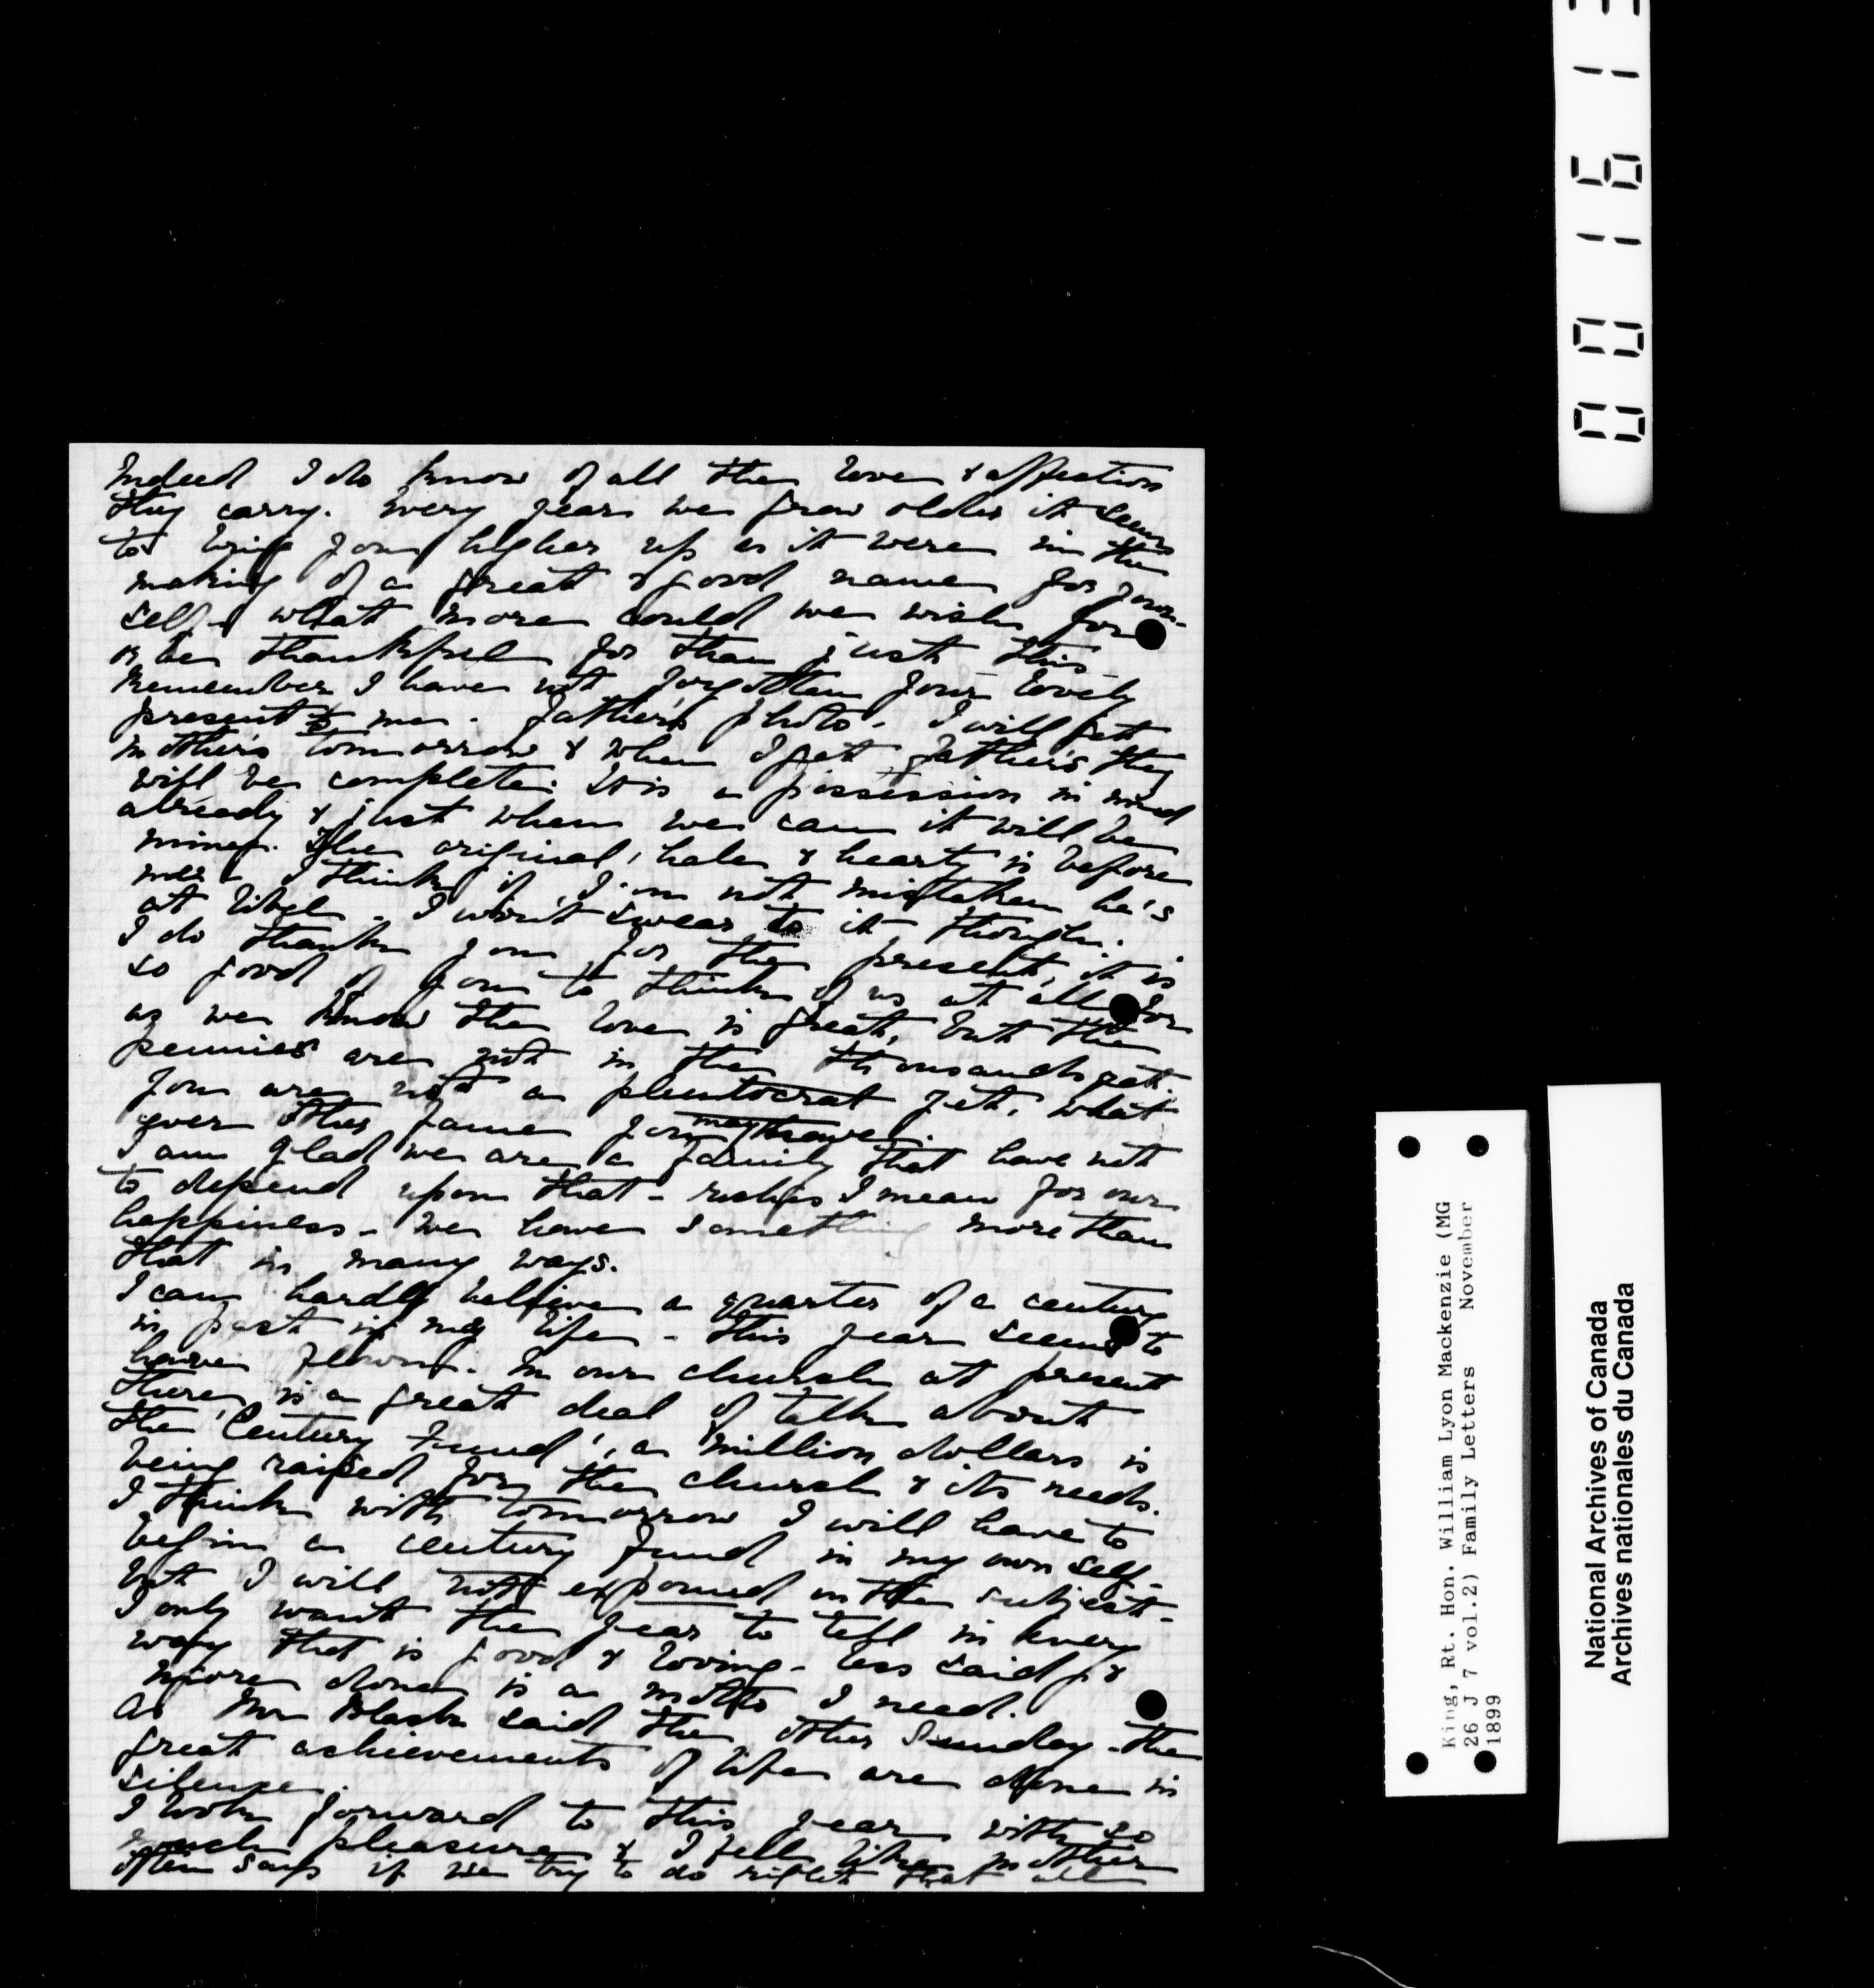 Indeed I do know of all the love & affection
they carry. Every year we grow older it seems
to bring you higher up as it were in the
making of a great & good name for your-
self - what more could we wish for
or be thankful for than just this -
Remember I have not forgotten your lovely
present to me. Father's photo. I will get
mother's tomorrow & when I get father's they
will be complete. It is a possession in mind
already & just when we can it will be
mine. The original, hale & hearty is before
me & I think if I'm not mistaken he's
at libel - I won't swear to it though.
I do thank you for the present, it is
so good of you to think of us at all for
as we know the love is great, but the
pennies are not in the thousands yet.
You are not a pleutocrat yet, what
ever other fame you may have.
I am glad we are a family that have not
to depend upon that - riches I mean for our
happiness - we have something more than
that in many ways.
I can hardly believe a quarter of a century
is past in my life - this year seems to
have flown. In our church at present
there is a great deal of talk about
the 'Century Fund', a million dollars is
being raised for the church & its needs.
I think with tomorrow I will have to
begin a century fund in my own self -
but I will not expound on the subject -
I only want the year to tell in every
way that is good & loving - less said &
more done is a motto I need.
As Mr said the other Sunday - the
great achievements of life are done in
silence.
I look forward to this year with so
much pleasure & I feel like mother
often says if we try to do right that all
National Archives of Canada
Archives nationales du Canada
King, Rt. Hon. William Lyon Mackenzie (MG
26 J 7 vol.2) Family Letters November
1899
00161